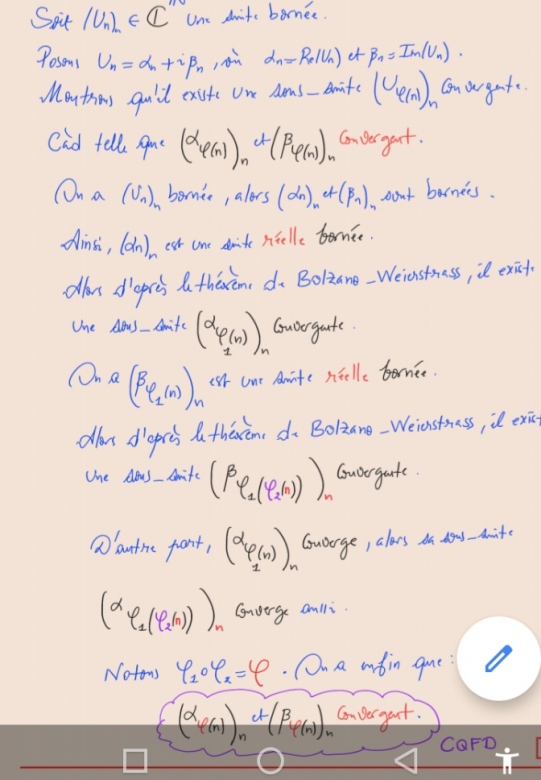 Soit (Un)n ∈ ℂ^ℕ une suite bornée.
Posons Un = αn + iβn, où αn = Re(Un) et βn = Im(Un).
Montrons qu'il existe une sous-suite (Uφ(n))n convergente.
Càd telle que (αφ(n))n et (βφ(n))n convergent.
On a (Un)n bornée, alors (αn)n et (βn)n sont bornées.
Ainsi, (αn)n est une suite réelle bornée.
Alors d'après le théorème de Bolzano-Weierstrass, il existe
une sous-suite (αφ1(n))n convergente.
On a (βφ1(n))n est une suite réelle bornée.
Alors d'après le théorème de Bolzano-Weierstrass, il exist
une sous-suite (βφ1(φ2(n)))n convergente.
D'autre part, (αφ1(n))n converge, alors sa sous-suite
(αφ1(φ2(n)))n converge aussi.
Notons φ1∘φ2 = φ. On a enfin que :
(αφ(n))n et (βφ(n))n convergent.
CQFD